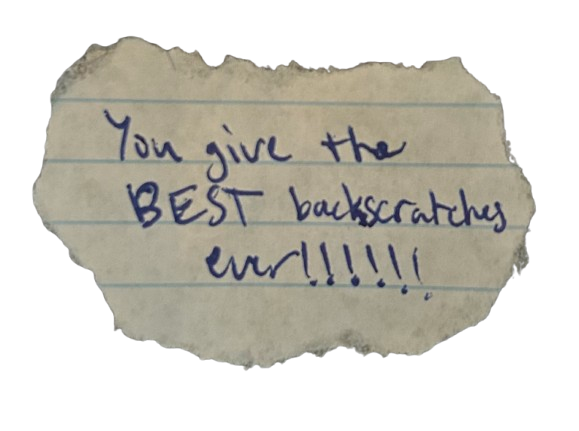 You give the
BEST backscratches
ever!!!!!!!